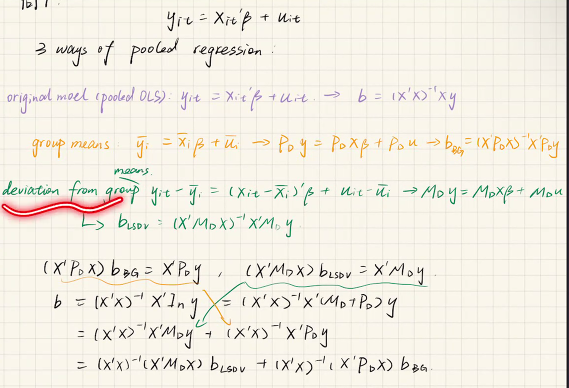 yit = Xit'β + uit
3 ways of pooled regression:
original moel (pooled OLS): yit = Xit'β + uit. → b = (X'X)⁻¹Xy
group means ȳi = X̄iβ + ūi → PDy = PDXβ + PDu → bBG = (X'PDX)⁻¹X'PDy
means
deviation from group yit - ȳi = (Xit - X̄i)'β + uit - ūi → MDy = MDXβ + MDu
↳ bLSDV = (X'MDX)⁻¹X'MDy
(X'PDX) bBG = X'PDy , (X'MDX) bLSDV = X'MDy
b = (X'X)⁻¹X'Iny = (X'X)⁻¹X'(MD+PD)y
= (X'X)⁻¹X'MDy + (X'X)⁻¹X'PDy
= (X'X)⁻¹(X'MDX) bLSDV + (X'X)⁻¹(X'PDX) bBG.